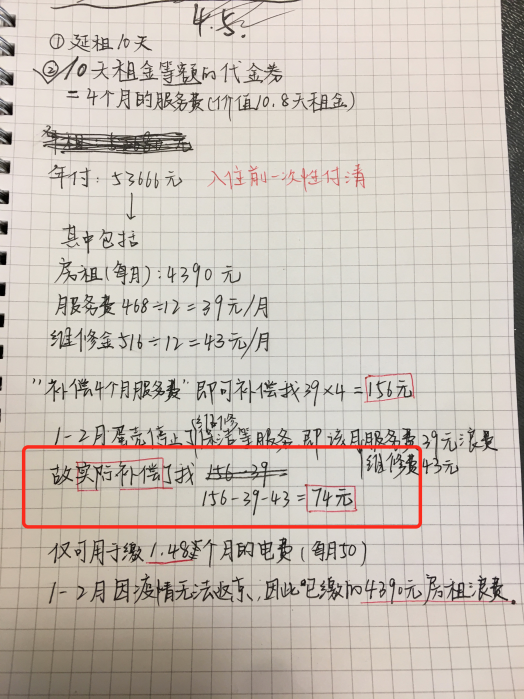 4.5.
① 延租10天
② 10天租金等额的代金券
=4个月的服务费(价值10.8天租金)
年付:53666元 入住前一次性付清
↓
其中包括
房租(每月):4390元
月服务费468÷12=39元/月
维修金516÷12=43元/月
"补偿4个月服务费"即可补偿我39×4=156元
1-2月蛋壳停止了保洁维修等服务 即该月服务费39元浪费
维修费43元
故实际补偿了我 156-39=
156-39-43=74元
仅可用于缴1.48个月的电费(每月50)
1-2月因疫情无法返京,因此已缴的4390元房租浪费。